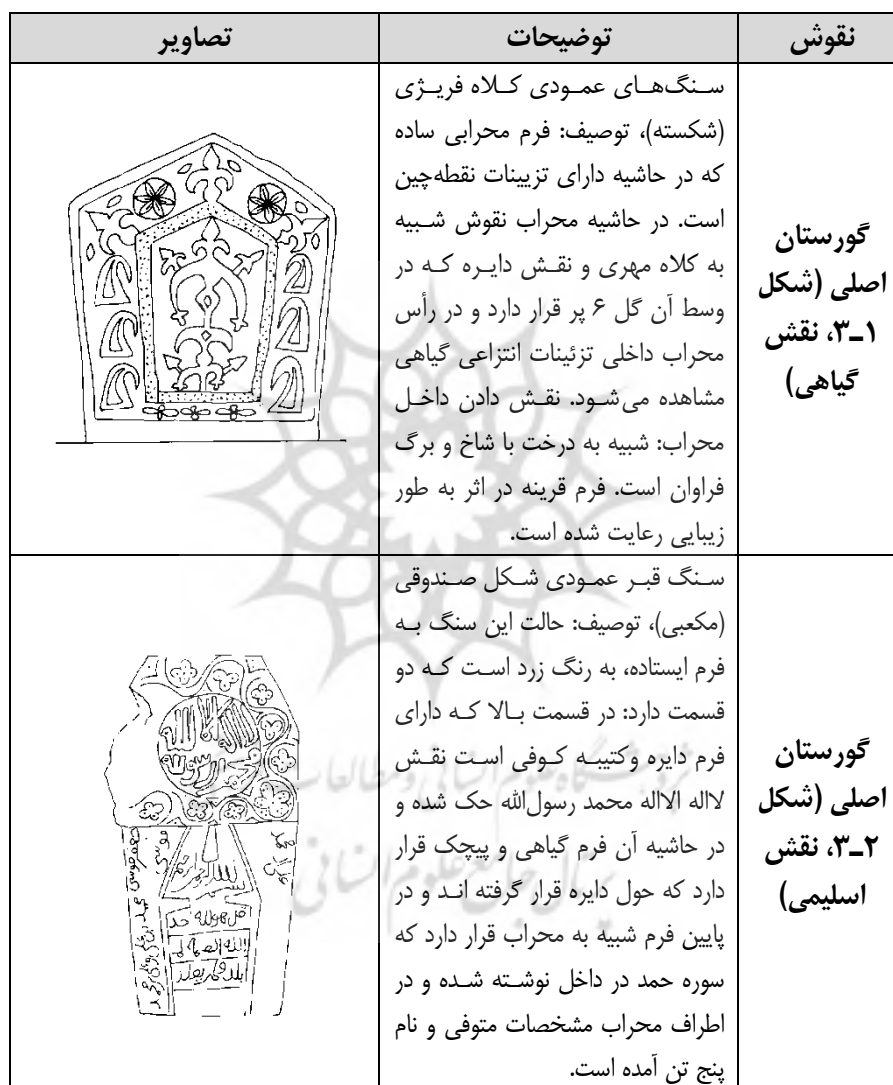 نقوش
توضیحات
تصاویر
گورستان
اصلی (شکل
۱ـ۳، نقش
گیاهی)
سنگ‌های عمودی کلاه فریژی
(شکسته)، توصیف: فرم محرابی ساده
که در حاشیه دارای تزیینات نقطه‌چین
است. در حاشیه محراب نقوش شبیه
به کلاه مهری و نقش دایره که در
وسط آن گل ۶ پر قرار دارد و در رأس
محراب داخلی تزئینات انتزاعی گیاهی
مشاهده می‌شود. نقش دادن داخل
محراب: شبیه به درخت با شاخ و برگ
فراوان است. فرم قرینه در اثر به طور
زیبایی رعایت شده است.
گورستان
اصلی (شکل
۲ـ۳، نقش
اسلیمی)
سنگ قبر عمودی شکل صندوقی
(مکعبی)، توصیف: حالت این سنگ به
فرم ایستاده، به رنگ زرد است که دو
قسمت دارد: در قسمت بالا که دارای
فرم دایره وکتیبه کوفی است نقش
لااله الااله محمد رسول‌الله حک شده و
در حاشیه آن فرم گیاهی و پیچک قرار
دارد که حول دایره قرار گرفته اند و در
پایین فرم شبیه به محراب قرار دارد که
سوره حمد در داخل نوشته شده و در
اطراف محراب مشخصات متوفی و نام
پنج تن آمده است.